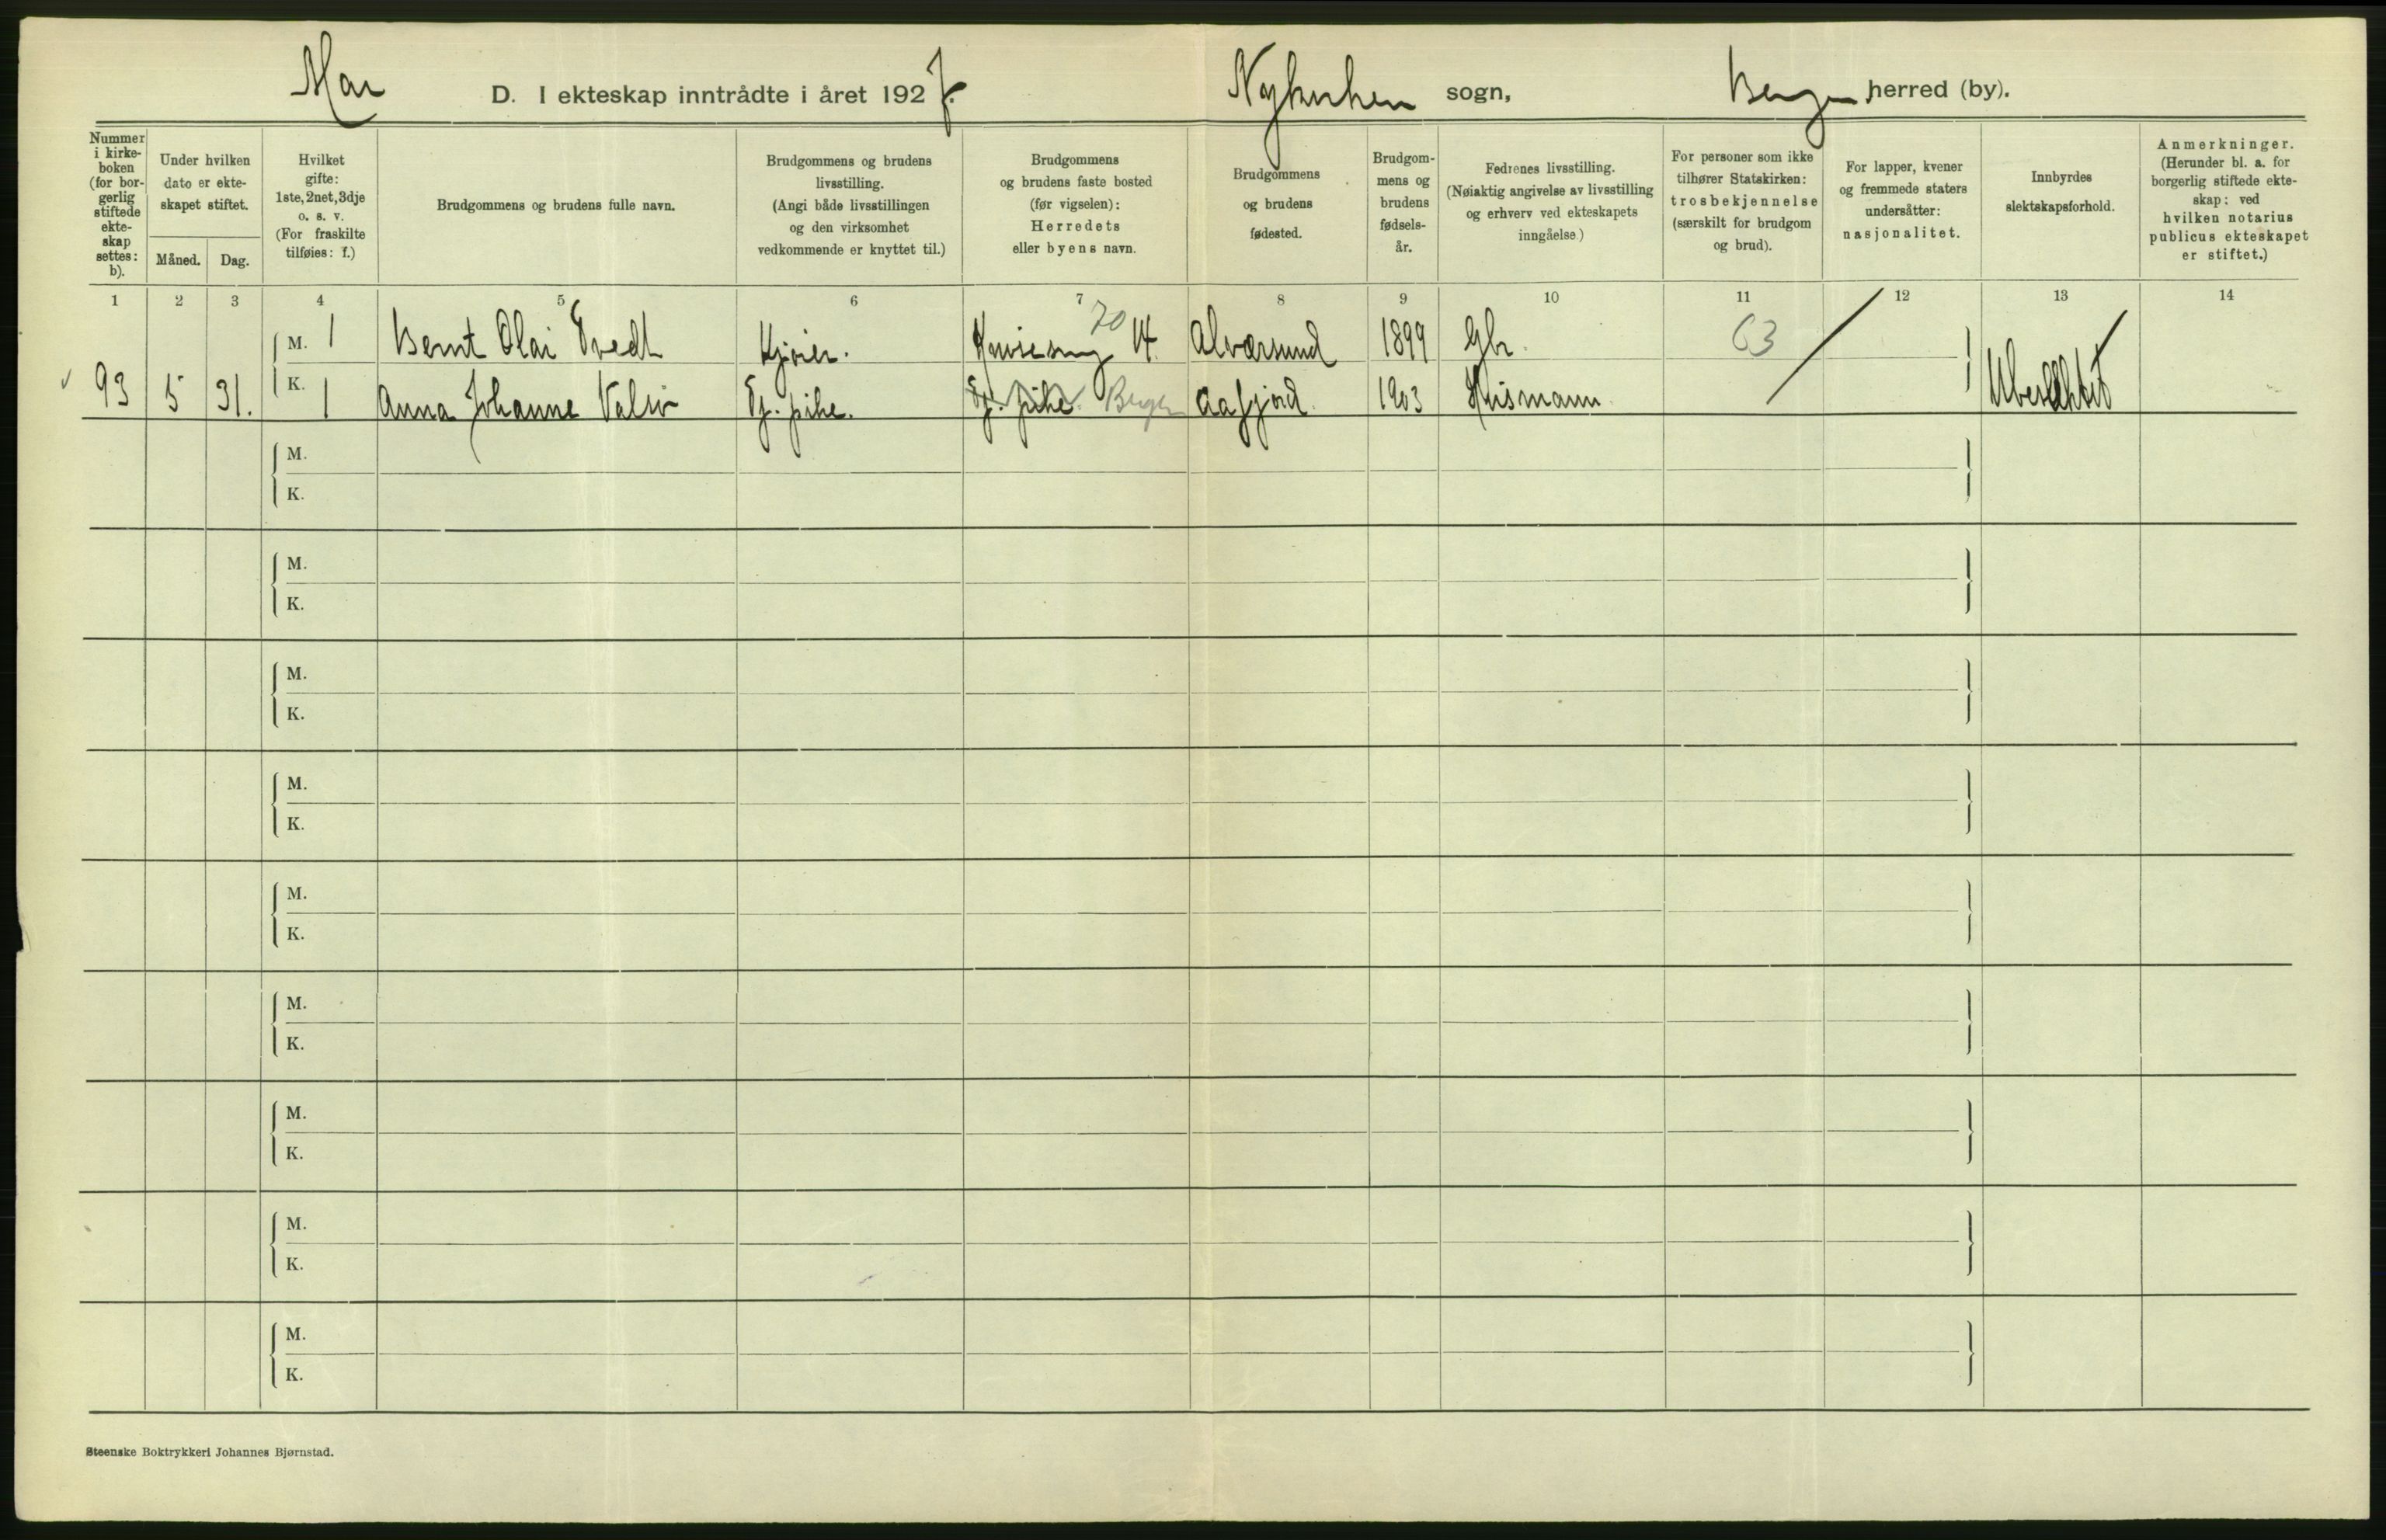 Mai D. I ekteskap inntrådte i året 1927. Nykirken sogn, Bergen herred (by).
Nummer
i kirke-
boken
(for bor-
gerlig
stiftede
ekte-
skap
settes:
b).
Under hvilken
dato er ekte-
skapet stiftet.
Måned. Dag.
Hvilket
gifte:
1ste, 2net, 3dje
o. s. v.
(For fraskilte
tilføies: f.)
Brudgommens og brudens fulle navn.
Brudgommens og brudens
livsstilling.
(Angi både livsstillingen
og den virksomhet
vedkommende er knyttet til.)
Brudgommens
og brudens faste bosted
(før vigselen):
Herredets
eller byens navn.
Brudgommens
og brudens
fødested.
Brudgom-
mens og
brudens
fødsels-
år.
Fedrenes livsstilling.
(Nøiaktig angivelse av livsstilling
og erhverv ved ekteskapets
inngåelse.)
For personer som ikke
tilhører Statskirken:
trosbekjennelse
(særskilt for brudgom
og brud).
For lapper, kvener
og fremmede staters
undersåtter:
nasjonalitet.
Innbyrdes
slektskapsforhold.
Anmerkninger.
(Herunder bl. a. for
borgerlig stiftede ekte-
skap: ved
hvilken notarius
publicus ekteskapet
er stiftet.)
1 2 3 4 5 6 7 8 9 10 11 12 13 14
M. 1 Bernt Olai Tvedt Kjører. 70 14 Alversund 1899 Gbr. 63
93 5 31. K. 1 Anna Johanne Valsø Tj. pike. Tj. pike. Bergen Aafjord. 1903 Husmann. Ubeslektet
M.
K.
M.
K.
M.
K.
M.
K.
M.
K.
M.
K.
M.
K.
M.
K.
M.
K.
Steenske Boktrykkeri Johannes Bjørnstad.